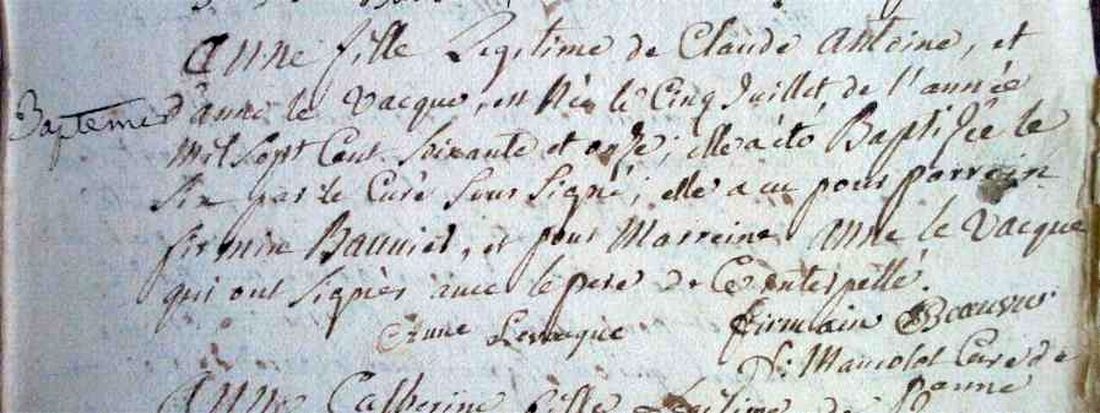 Anne fille Legitime de Claude Antoine, et
Baptême d'anne le Vacque, est Née le Cinq Juillet de l'année
mil Sept Cent Soixante et onze; elle a été Baptisée le
Six par le Curé Sous Signé; elle a eu pour parrein
firmin Bauvies, et pour Marreine Anne le Vacque
qui ont Signés avec le pere de Ce interpellé.
Anne Levacque Firmain Beauvus
Curé de
Anne Catherine fille Legitime de